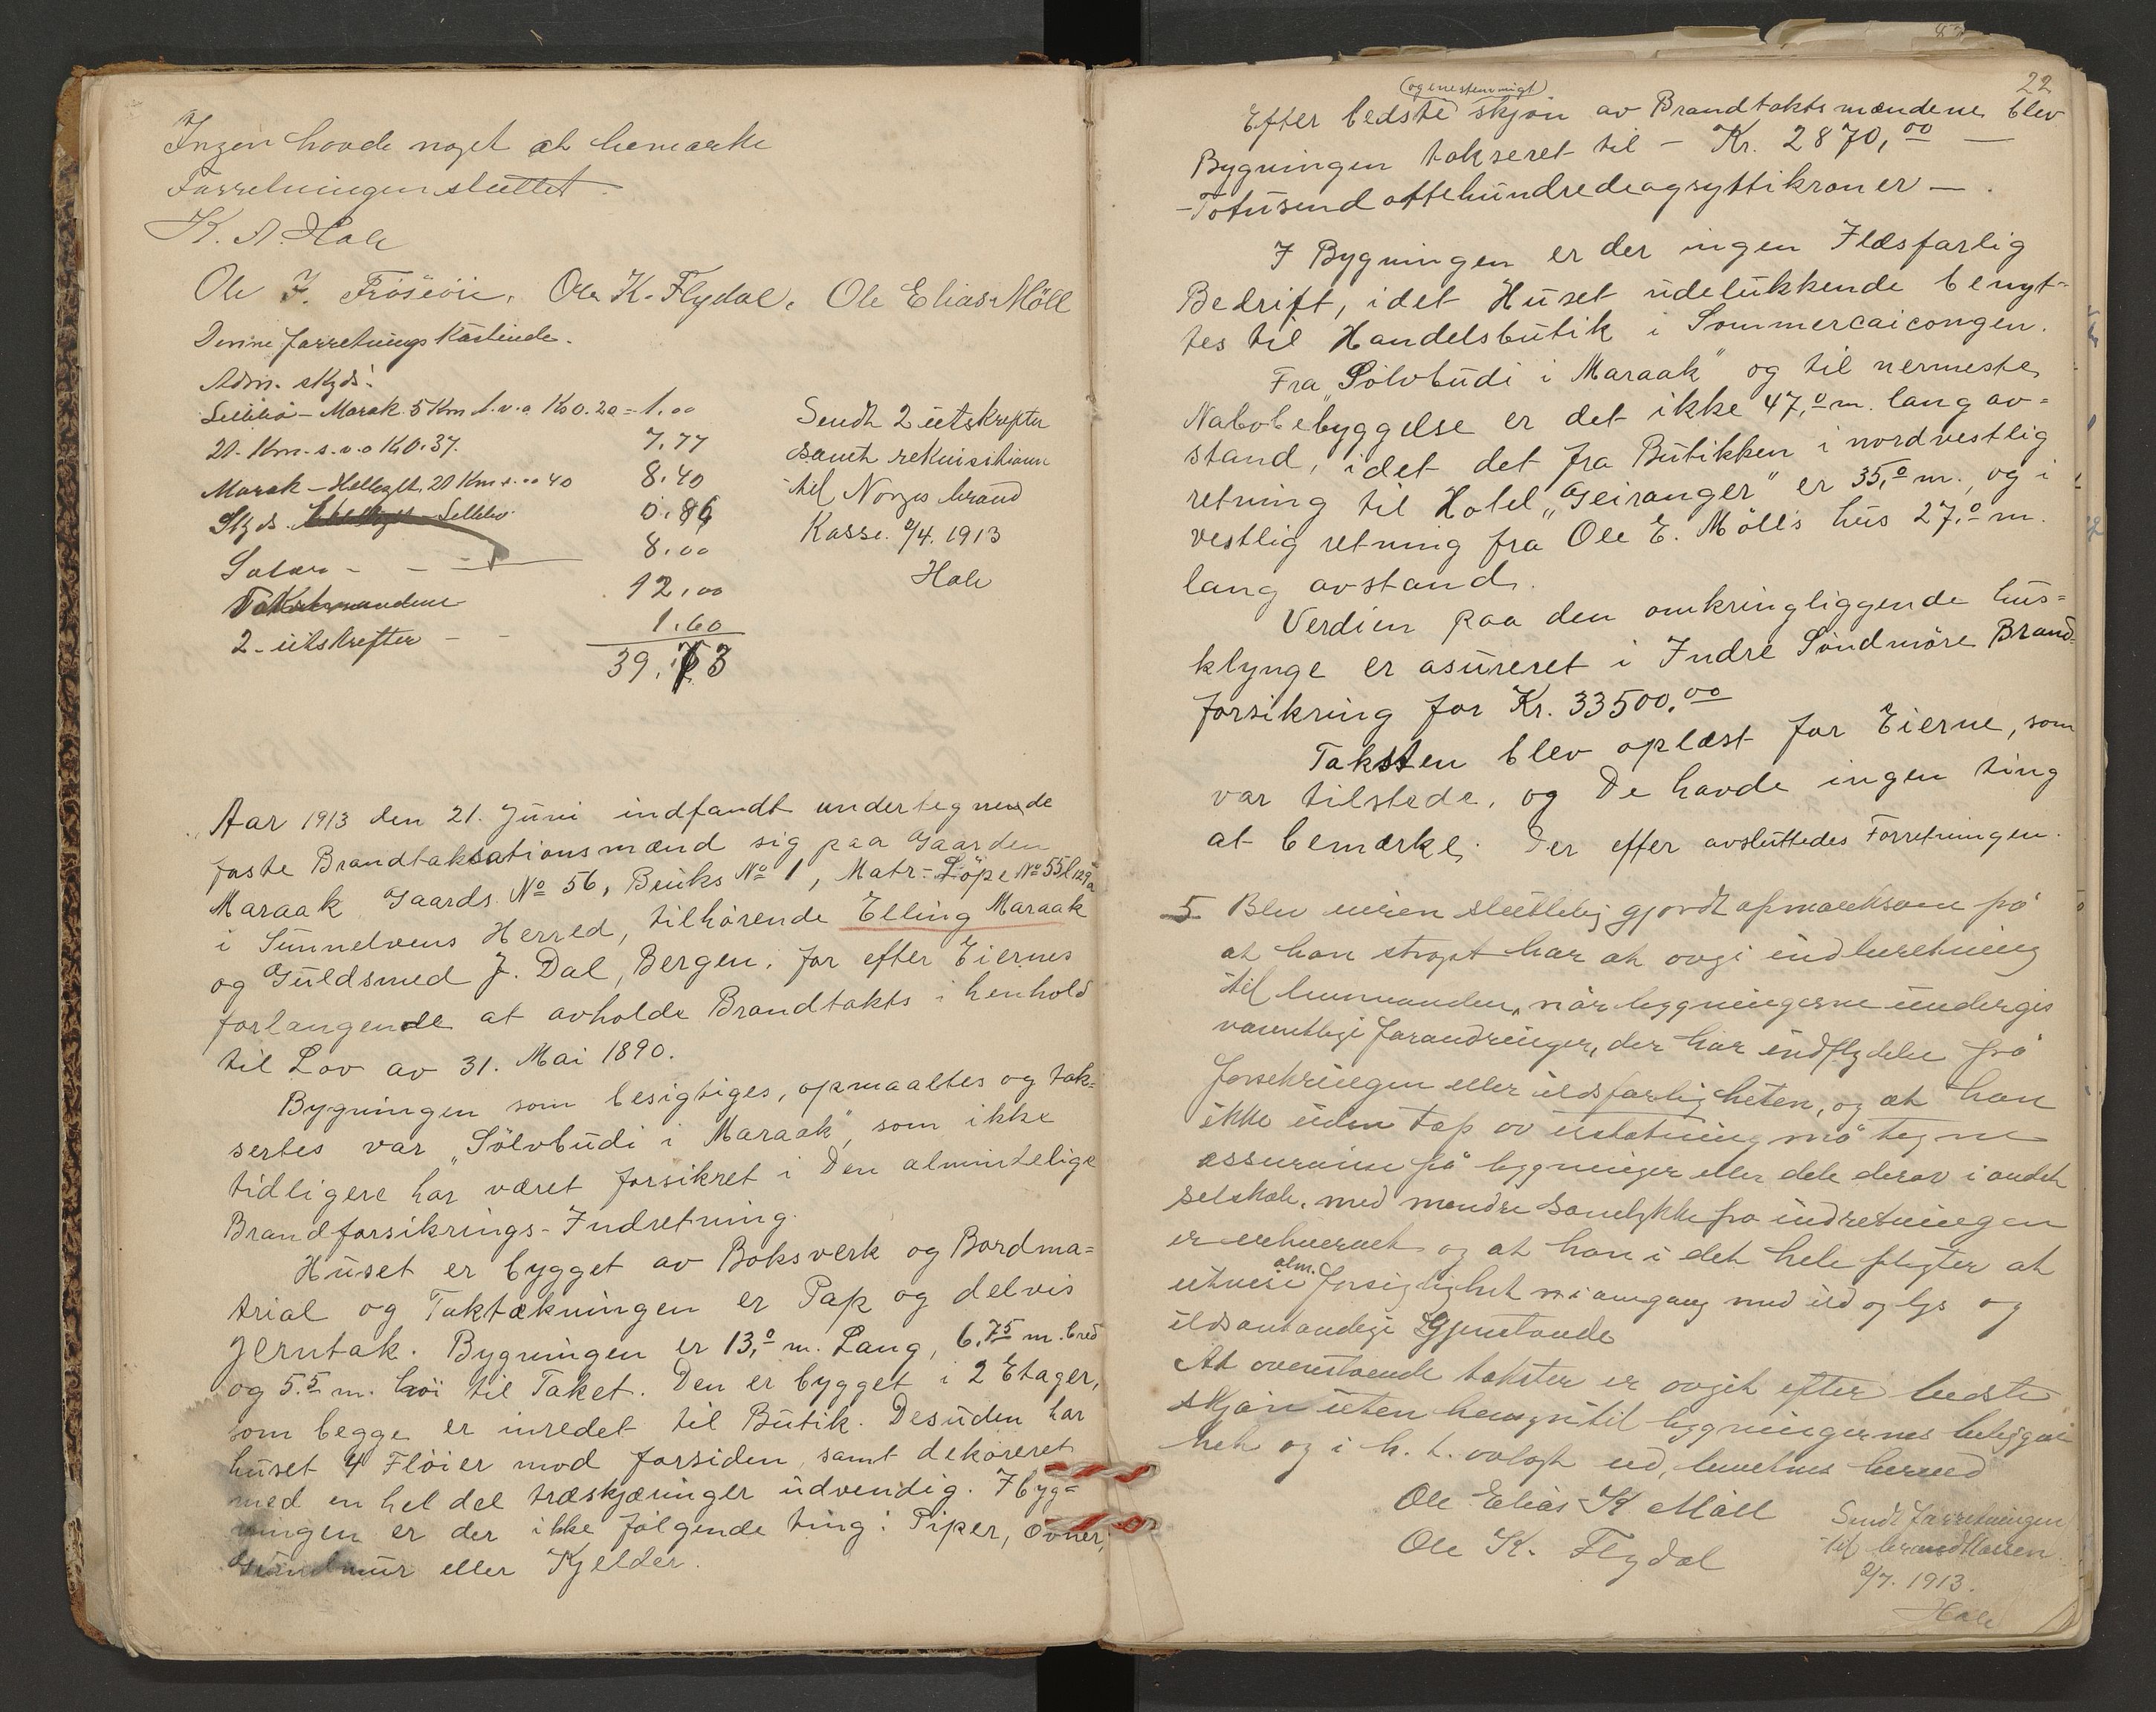 Ingen havde noget at bemærke
Forretningen sluttet.
K. A. Hole
Ole K. Flydal. Ole Elias Möll
Denne forretnings kostende.
Adm. skyds:
Marak 5 Km 0.20 = 1.00
20. Km. 0.37. 7.77
Marak – Hellesylt 20 Km 40 8.40
Skyds 0.86
Salær - - 8.00
Takstmændene 12.00
2 utskrefter - - 1.60
39.63
Sendt 2 utskrefter
samt rekvisitionen
til Norges brand
Kasse. 2/4. 1913
Hole
Aar 1913 den 21. Juni indfandt undertegnende
faste Brandtaksationsmænd sig paa Gaarden
Maraak Gaards No 56, Bruks No 1, Matr-Löpe No 55 l 129a
i Sunnelvens Herred, tilhörende Elling Maraak
og Guldsmed J. Dal, Bergen, for efter Eiernes
forlangende at avholde Brandtakts i henhold
til Lov av 31. Mai 1890.
Bygningen som besigtiges, opmaaltes og tak-
sertes var „Sölvbudi i Maraak", som ikke
tidligere har været forsikret i Den almindelige
Brandforsikrings-Indretning.
Huset er bygget av Boksverk og Bordma=
trial og Taktækningen er Pap og delvis
Jerntak. Bygningen er 13,0 m. Lang, 6.75 m. bred
og 5.5 m. höi til Taket. Den er bygget i 2 Etager,
som begge er inredet til Butik. Desuden har
huset 4 Flöier mod forsiden, samt dekoreret
med en hel del træskjæringer udvendig. I byg=
ningen er der ikke fölgende ting: Piper, Ovner,
Grundmur eller Kjelder.
22
(og enestemmigt)
Efter bedste skjön av Brandtaktsmændene blev
Bygningen takseret til – Kr. 2870,00 —
-Totusend ottehundredeogsyttikroner —.
I Bygningen er der ingen Ildsfarlig
Bedrift, idet Huset udelukkende benyt-
tes til Handelsbutik i Sommercaicongen.
Fra „Sölvbudi i Maraak" og til nermeste
Nabobebyggelse er det ikke 47,0 m. lang av=
stand, idet det fra Butikken i nordvestlig
retning til Hotel „Geiranger" er 35,0 m., og i
vestlig retning fra Ole E. Möll's hus 27,0 m.
lang avstand.
Verdien paa den omkringliggende hus=
klynge er asureret i Indre Söndmöre Brand-
forsikring for Kr. 33500,00
Taksten blev oplæst for Eierne, som
var tilstede, og De havde ingen ting
at bemærke. Der efter avsluttedes Forretningen.
5. Blev eieren sluttelig gjordt opmærksom på
at han strogst har at avgi indberetning
til lensmanden, når bygningerne undergis
væsentlige forandringer, der har indflydelse på
forsikringen eller ildsfarligheten, og at han
ikke uden tap av erstatning må tegne
assuranse på bygninger eller dele derav i andet
selskab, med mindre samtykke fra indretningen
er erhvervet og at han i det hele pligter at
utvise alm. forsigtighet i omgang med ild og lys og
ildsantændelige Gjenstande
At ovenstående takster er avgit efter bedste
skjön uten hensyn til bygningernes beliggen
het og i h. t. avlagt ed, bevidnes herved
Ole Elias K Möll
Ole K. Flydal
Sendt forretningen
til brandkassen
2/7. 1913.
Hole